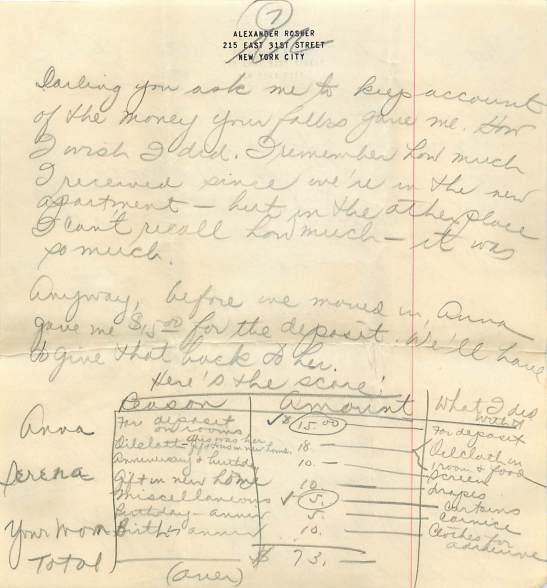 7
ALEXANDER ROSHER
215 EAST 31ST STREET
NEW YORK CITY
Darling you ask me to keep account
of the money your folks gave me. How
I wish I did. I remember how much
I received since we're in the new
apartment — but in the other place
I can't recall how much — it was
so much.
Anyway, before we moved in, Anna
gave me $15.00 for the deposit. We'll have
to give that back to her.
Here's the score:
Eason Amount What I did with it
Anna For deposit on rooms $15.00 For deposit
Oilcloth — this was her gift in new home. 18. — Oilcloth in room & food
Anniversary & birthday 10. — Screen
Serena Gift in new home 10. — drapes
Miscellaneous 5. curtains
Birthday - anniv 5. cornice
Your Mom Birth & anniv 10. Clothes for
Total $ 73. —
(over)